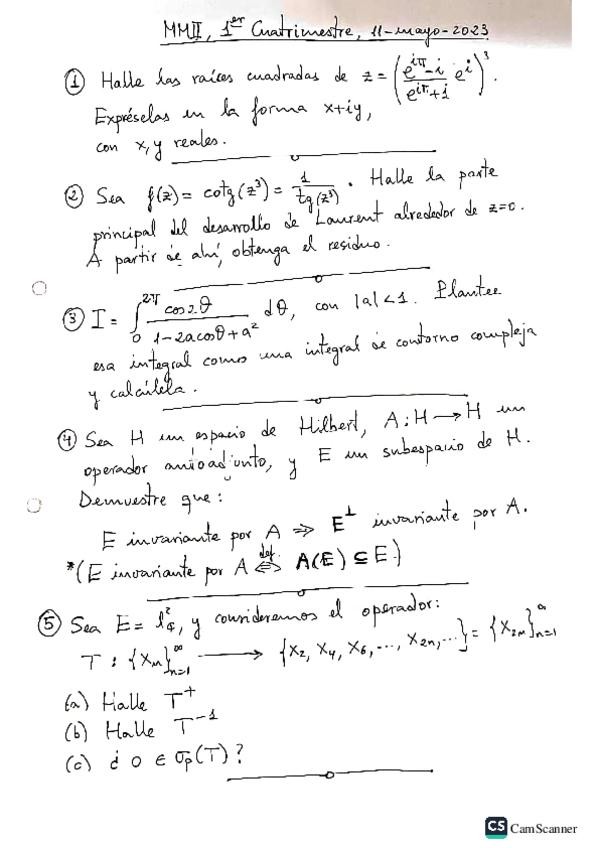 MMII, 1er Cuatrimestre, 11-mayo-2023
① Halle las raíces cuadradas de z = ( (e^{iπ} - i) / (e^{iπ} + i) e^i )^3.
Expréselas en la forma x+iy,
con x,y reales.
② Sea f(z) = cotg(z³) = 1/tg(z³). Halle la parte
principal del desarrollo de Laurent alrededor de z=0.
A partir de ahí, obtenga el residuo.
③ I = ∫_0^{2π} cos2θ / (1-2acosθ+a²) dθ, con |a|<1. Plantee
esa integral como una integral de contorno compleja
y calcúlela.
④ Sea H un espacio de Hilbert, A: H → H un
operador autoadjunto, y E un subespacio de H.
Demuestre que:
E invariante por A ⇒ E^⊥ invariante por A.
*(E invariante por A ⇔ def. A(E) ⊆ E.)
⑤ Sea E = l²_¢, y consideremos el operador:
T: {x_n}_{n=1}^∞ → {x_2, x_4, x_6, ..., x_{2n}, ...} = {x_{2n}}_{n=1}^∞
(a) Halle T^+
(b) Halle T^{-1}
(c) ¿0 ∈ σ_p(T)?
CS CamScanner